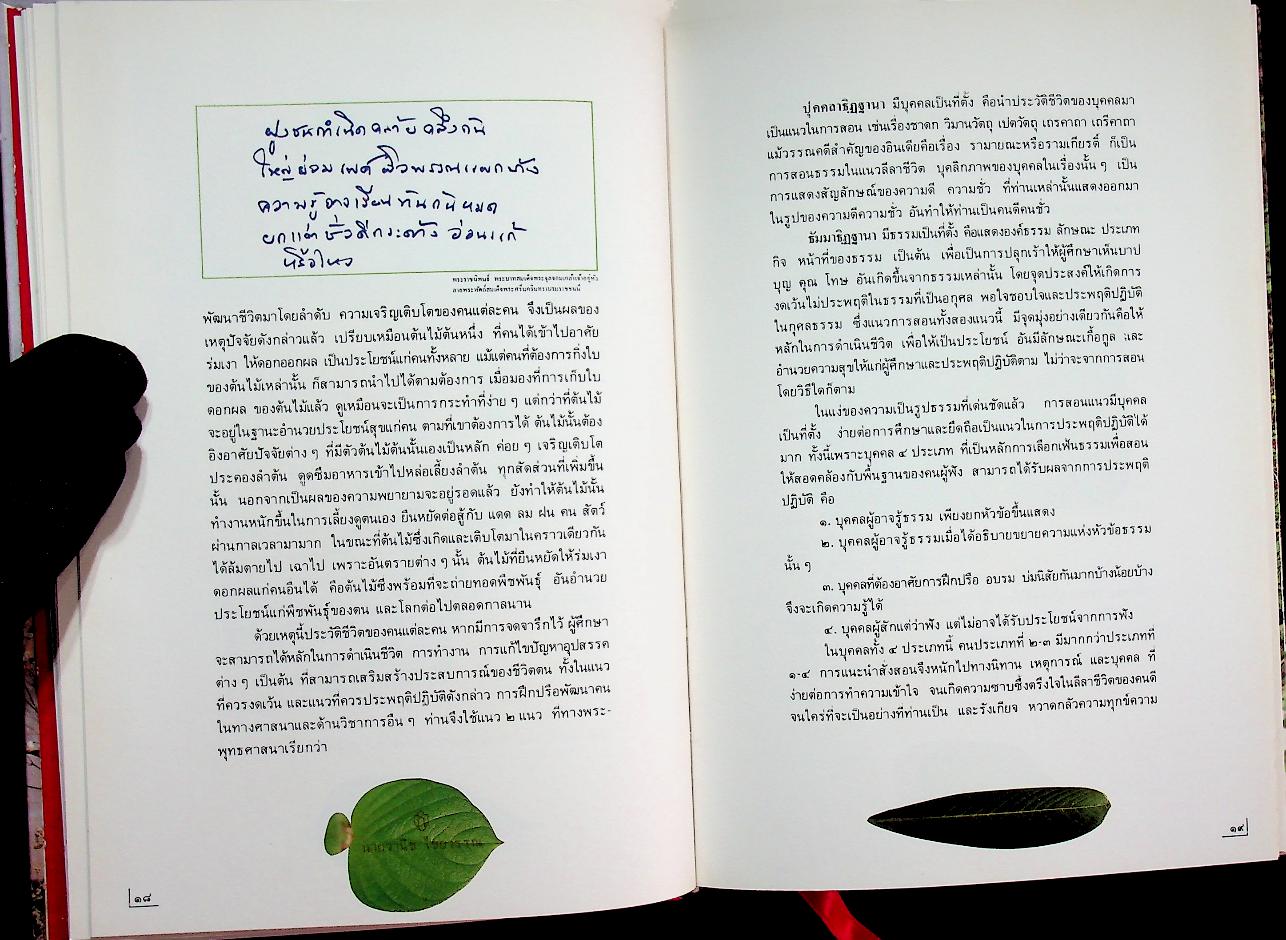 ฝูงชนกำเนิดคล้าย คลึงกัน
ใหญ่ย่อม เพศ ผิวพรรณ แผกบ้าง
ความรู้อาจเรียน ทันกันหมด
ยกแต่ ชั่วดีกระด้าง อ่อนแก้
ฤๅไหว
พระราชนิพนธ์ พระบาทสมเด็จพระจุลจอมเกล้าเจ้าอยู่หัว
ลายพระหัตถ์สมเด็จพระศรีนครินทราบรมราชชนนี
พัฒนาชีวิตมาโดยลำดับ ความเจริญเติบโตของคนแต่ละคน จึงเป็นผลของ
เหตุปัจจัยดังกล่าวแล้ว เปรียบเหมือนต้นไม้ต้นหนึ่ง ที่คนได้เข้าไปอาศัย
ร่มเงา ให้ดอกออกผล เป็นประโยชน์แก่คนทั้งหลาย แม้แต่คนที่ต้องการกิ่งใบ
ของต้นไม้เหล่านั้น ก็สามารถนำไปได้ตามต้องการ เมื่อมองที่การเก็บใบ
ดอกผล ของต้นไม้แล้ว ดูเหมือนจะเป็นการกระทำที่ง่าย ๆ แต่กว่าที่ต้นไม้
จะอยู่ในฐานะอำนวยประโยชน์สุขแก่คน ตามที่เขาต้องการได้ ต้นไม้นั้นต้อง
อิงอาศัยปัจจัยต่าง ๆ ที่มีตัวต้นไม้ต้นนั้นเองเป็นหลัก ค่อย ๆ เจริญเติบโต
ประคองลำต้น ดูดซึมอาหารเข้าไปหล่อเลี้ยงลำต้น ทุกสัดส่วนที่เพิ่มขึ้น
นั้น นอกจากเป็นผลของความพยายามจะอยู่รอดแล้ว ยังทำให้ต้นไม้นั้น
ทำงานหนักขึ้นในการเลี้ยงดูตนเอง ยืนหยัดต่อสู้กับ แดด ลม ฝน คน สัตว์
ผ่านกาลเวลามามาก ในขณะที่ต้นไม้ซึ่งเกิดและเติบโตมาในคราวเดียวกัน
ได้ล้มตายไป เฉาไป เพราะอันตรายต่าง ๆ นั้น ต้นไม้ที่ยืนหยัดให้ร่มเงา
ดอกผลแก่คนอื่นได้ คือต้นไม้ซึ่งพร้อมที่จะถ่ายทอดพืชพันธุ์ อันอำนวย
ประโยชน์แก่พืชพันธุ์ของตน และโลกต่อไปตลอดกาลนาน
ด้วยเหตุนี้ประวัติชีวิตของคนแต่ละคน หากมีการจดจารึกไว้ ผู้ศึกษา
จะสามารถได้หลักในการดำเนินชีวิต การทำงาน การแก้ไขปัญหาอุปสรรค
ต่าง ๆ เป็นต้น ที่สามารถเสริมสร้างประสบการณ์ของชีวิตตน ทั้งในแนว
ที่ควรงดเว้น และแนวที่ควรประพฤติปฏิบัติดังกล่าว การฝึกปรือพัฒนาคน
ในทางศาสนาและด้านวิชาการอื่น ๆ ท่านจึงใช้แนว ๒ แนว ที่ทางพระ-
พุทธศาสนาเรียกว่า
นายวานิช ไชยวรรณ
๑๘
ปุคคลาธิฏฐานา มีบุคคลเป็นที่ตั้ง คือนำประวัติชีวิตของบุคคลมา
เป็นแนวในการสอน เช่นเรื่องชาดก วิมานวัตถุ เปตวัตถุ เถรคาถา เถรีคาถา
แม้วรรณคดีสำคัญของอินเดียคือเรื่อง รามายณะหรือรามเกียรติ์ ก็เป็น
การสอนธรรมในแนวลีลาชีวิต บุคลิกภาพของบุคคลในเรื่องนั้น ๆ เป็น
การแสดงสัญลักษณ์ของความดี ความชั่ว ที่ท่านเหล่านั้นแสดงออกมา
ในรูปของความดีความชั่ว อันทำให้ท่านเป็นคนดีคนชั่ว
ธัมมาธิฏฐานา มีธรรมเป็นที่ตั้ง คือแสดงองค์ธรรม ลักษณะ ประเภท
กิจ หน้าที่ของธรรม เป็นต้น เพื่อเป็นการปลุกเร้าให้ผู้ศึกษาเห็นบาป
บุญ คุณ โทษ อันเกิดขึ้นจากธรรมเหล่านั้น โดยจุดประสงค์ให้เกิดการ
งดเว้นไม่ประพฤติในธรรมที่เป็นอกุศล พอใจชอบใจและประพฤติปฏิบัติ
ในกุศลธรรม ซึ่งแนวการสอนทั้งสองแนวนี้ มีจุดมุ่งอย่างเดียวกันคือให้
หลักในการดำเนินชีวิต เพื่อให้เป็นประโยชน์ อันมีลักษณะเกื้อกูล และ
อำนวยความสุขให้แก่ผู้ศึกษาและประพฤติปฏิบัติตาม ไม่ว่าจะจากการสอน
โดยวิธีใดก็ตาม
ในแง่ของความเป็นรูปธรรมที่เด่นชัดแล้ว การสอนแนวมีบุคคล
เป็นที่ตั้ง ง่ายต่อการศึกษาและยึดถือเป็นแนวในการประพฤติปฏิบัติได้
มาก ทั้งนี้เพราะบุคคล ๔ ประเภท ที่เป็นหลักการเลือกเฟ้นธรรมเพื่อสอน
ให้สอดคล้องกับพื้นฐานของคนผู้ฟัง สามารถได้รับผลจากการประพฤติ
ปฏิบัติ คือ
๑. บุคคลผู้อาจรู้ธรรม เพียงยกหัวข้อขึ้นแสดง
๒. บุคคลผู้อาจรู้ธรรมเมื่อได้อธิบายขยายความแห่งหัวข้อธรรม
นั้น ๆ
๓. บุคคลที่ต้องอาศัยการฝึกปรือ อบรม บ่มนิสัยกันมากบ้างน้อยบ้าง
จึงจะเกิดความรู้ได้
๔. บุคคลผู้สักแต่ว่าฟัง แต่ไม่อาจได้รับประโยชน์จากการฟัง
ในบุคคลทั้ง ๔ ประเภทนี้ คนประเภทที่ ๒-๓ มีมากกว่าประเภทที่
๑-๔ การแนะนำสั่งสอนจึงหนักไปทางนิทาน เหตุการณ์ และบุคคล ที่
ง่ายต่อการทำความเข้าใจ จนเกิดความซาบซึ้งตรึงใจในลีลาชีวิตของคนดี
จนใคร่ที่จะเป็นอย่างที่ท่านเป็น และรังเกียจ หวาดกลัวความทุกข์ความ
๑๙